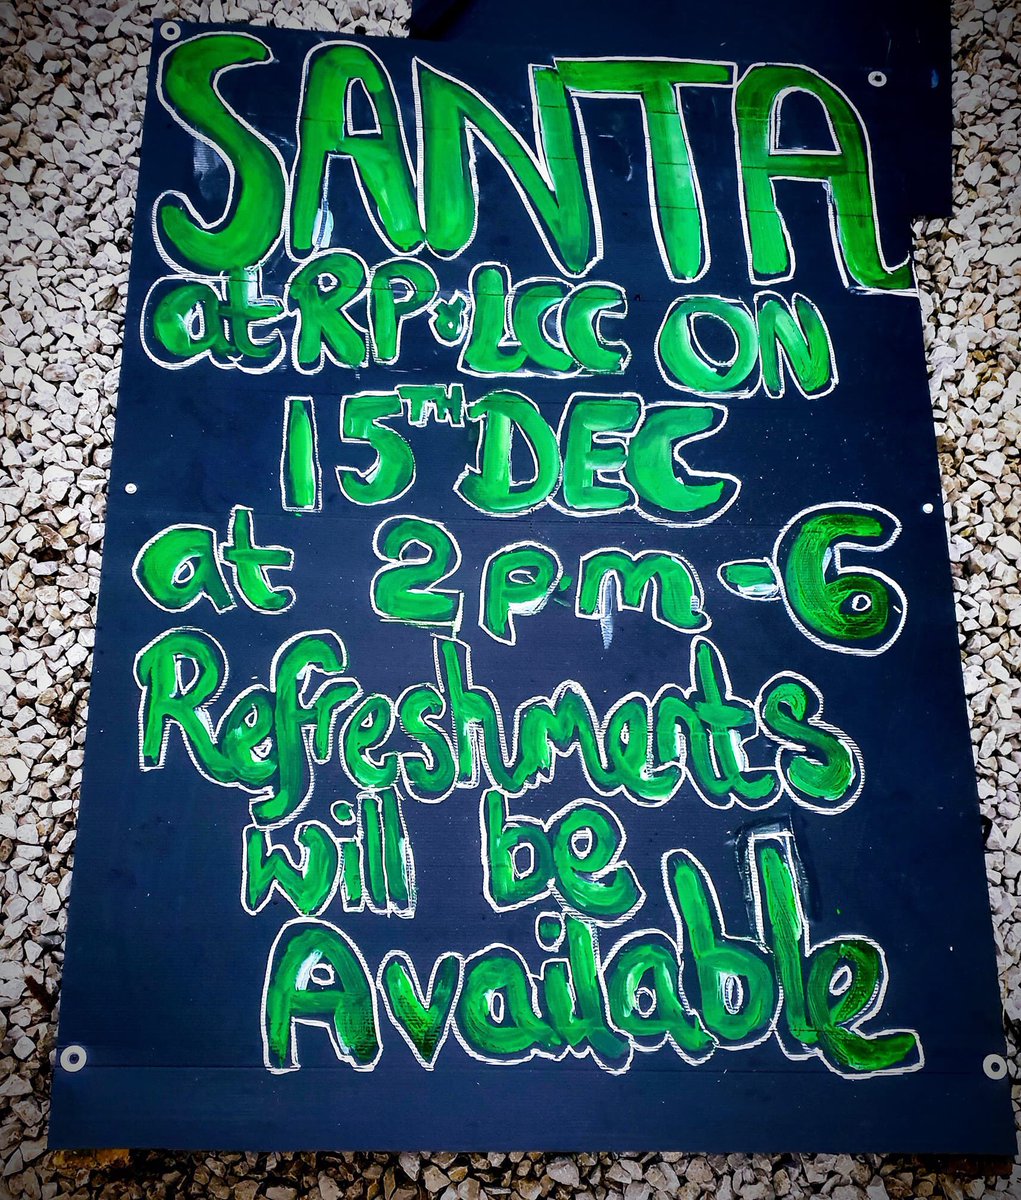 SANTA
at RP&LCC ON
15TH DEC
at 2 p.m. -6
Refreshments
will be
Available